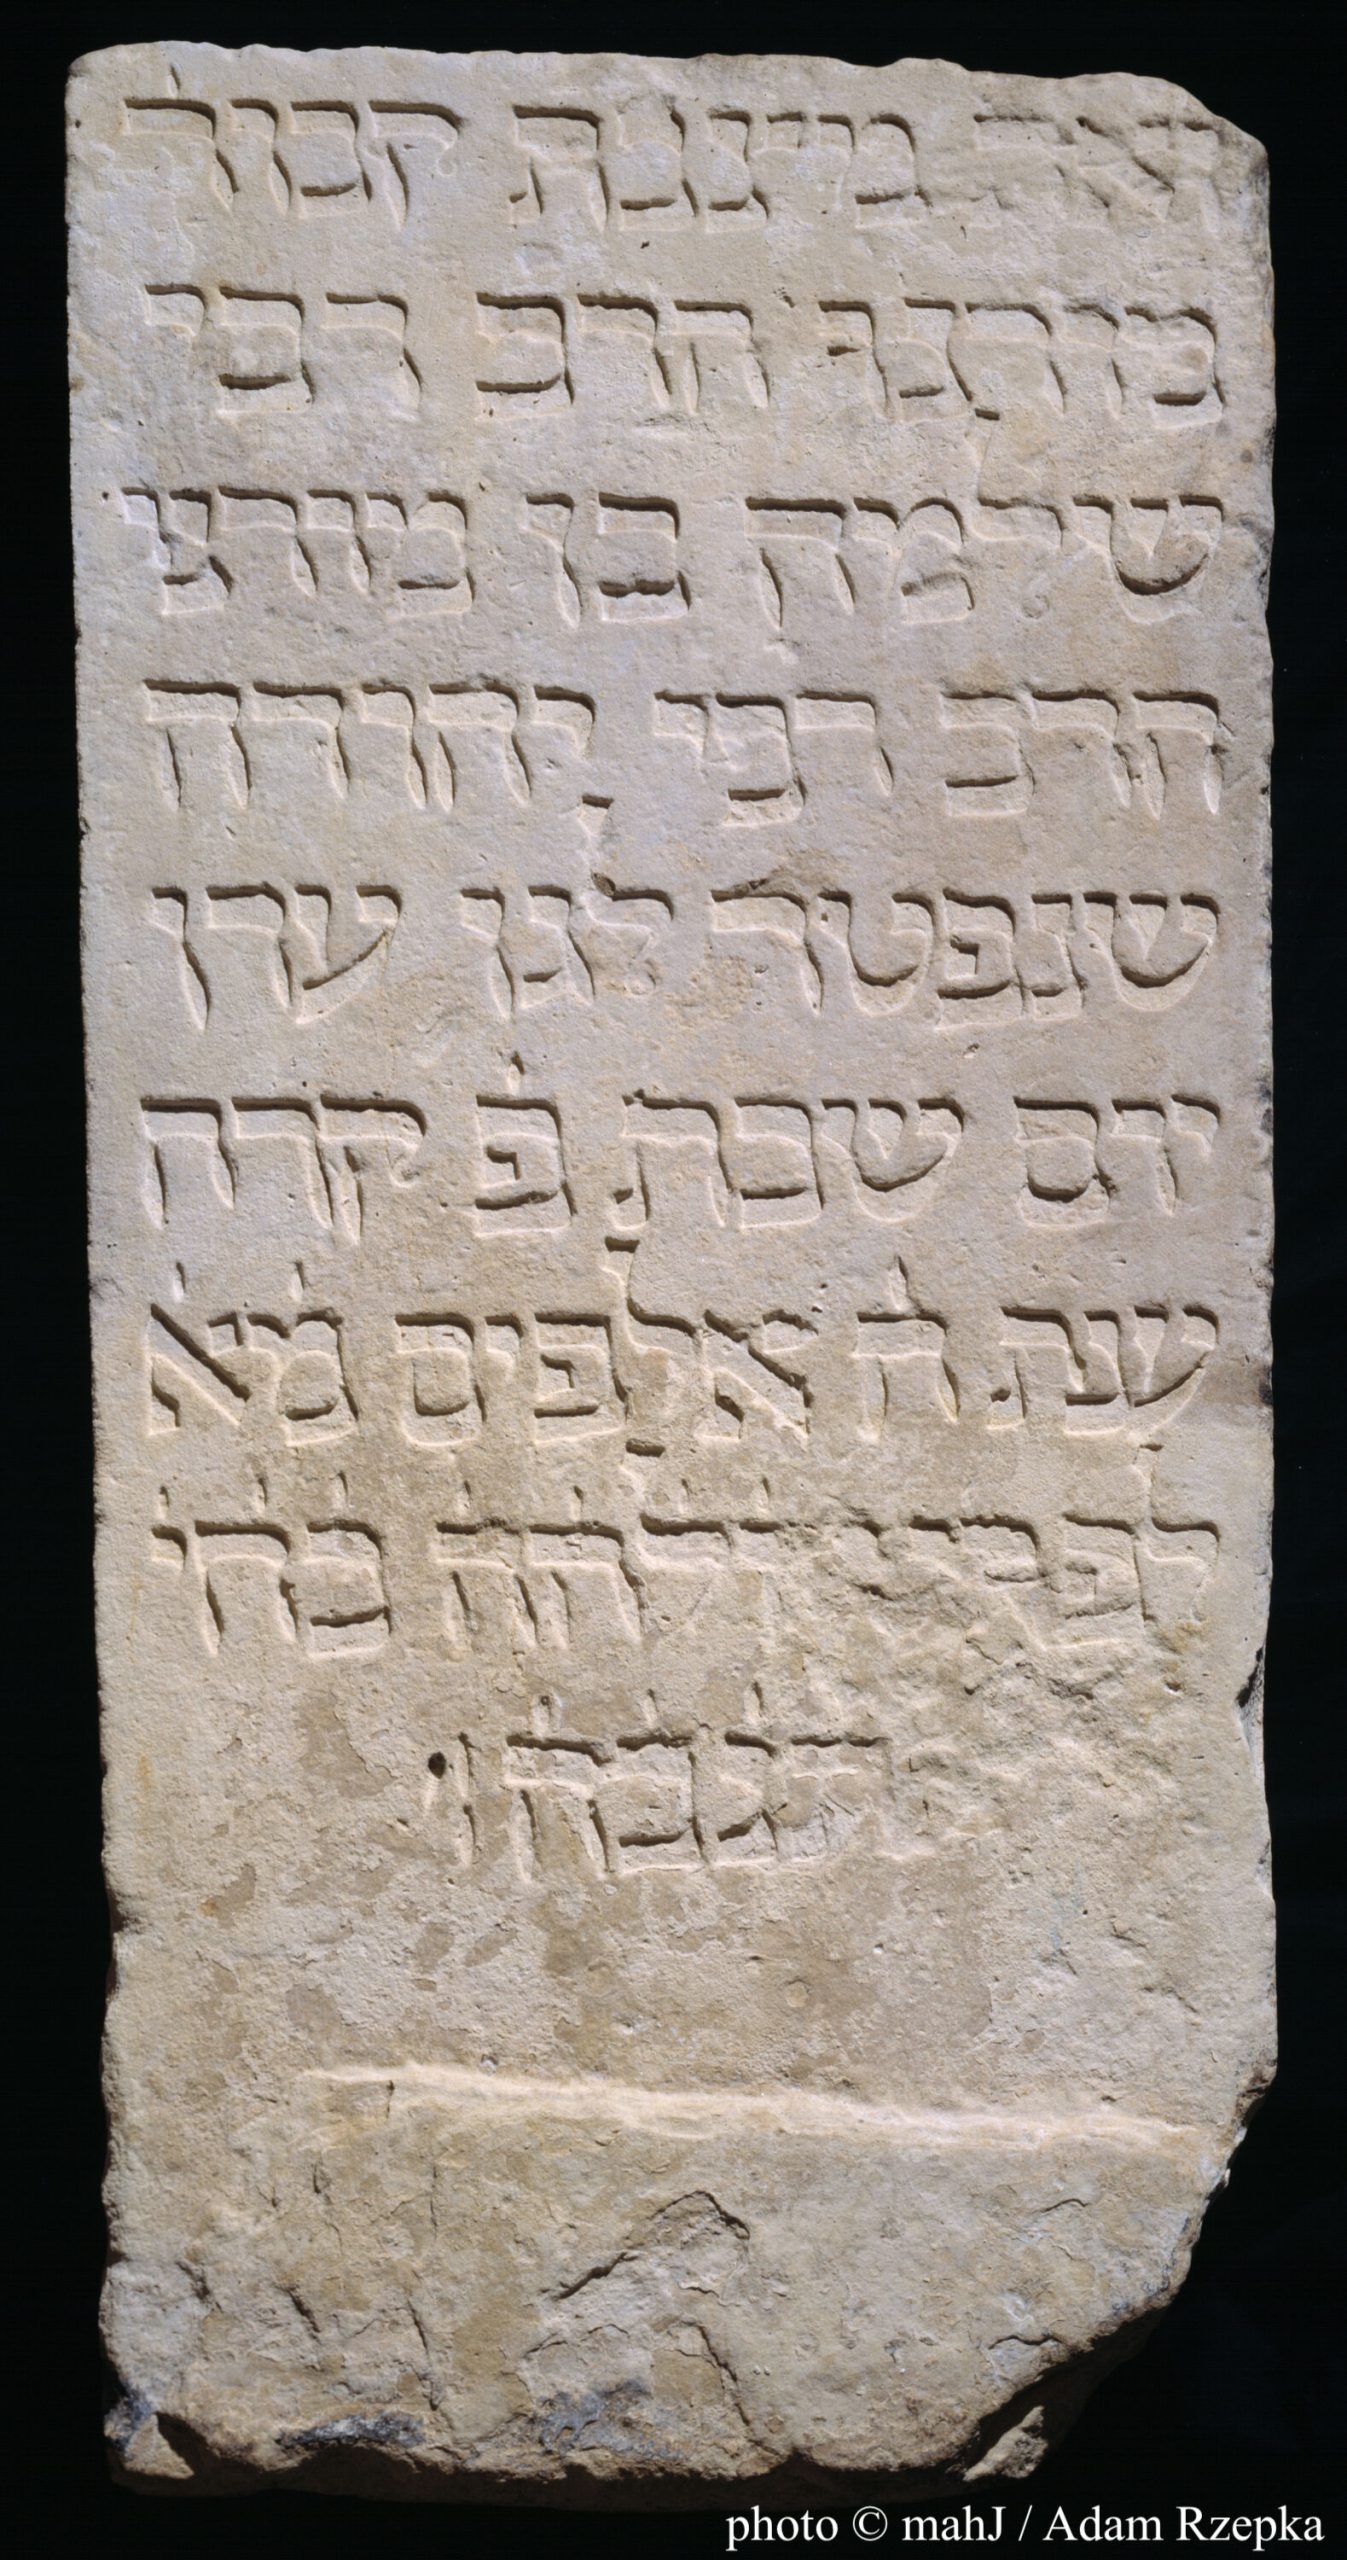 זאת מצבת קבור׳
מורנו הרב רבי
שלמה בן מורי
הרב רבי יהודה
שנפטר לגן עדן
יום שבת פ׳ קרח
שנת ה׳ אלפים מ׳א׳
לפרט ז׳ל׳ה׳ה׳ מ׳ח׳י׳
ת׳נ׳צ׳ב׳ה׳
photo © mahJ / Adam Rzepka